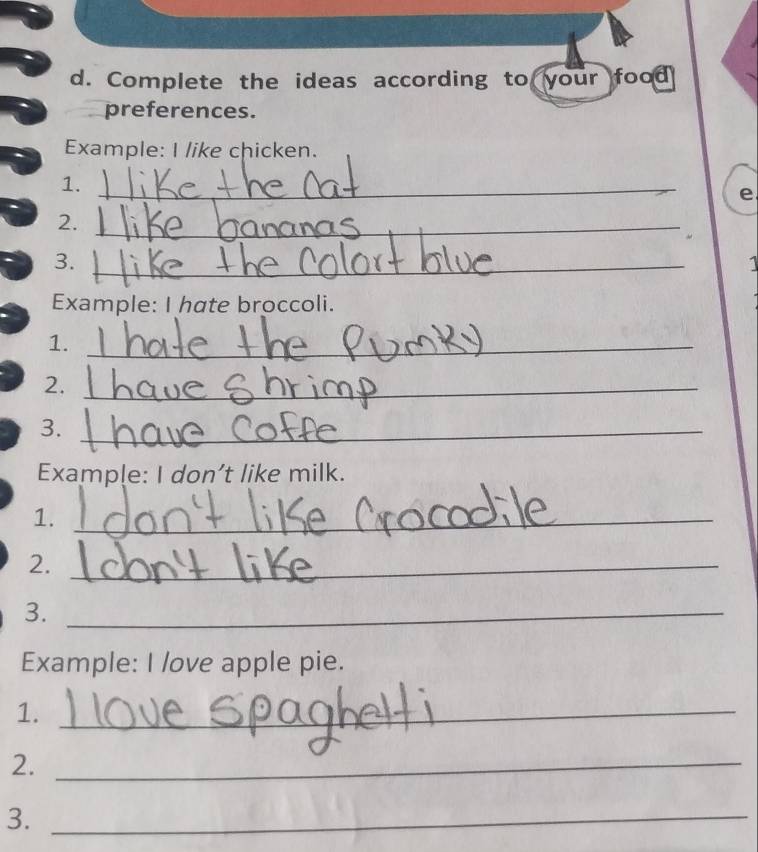 d. Complete the ideas according to your food
preferences.
Example: I like chicken.
1. I like the cat
2. I like bananas
3. I like the colort blue
Example: I hate broccoli.
1. I hate the pumky
2. I have Shrimp
3. I have coffe
Example: I don't like milk.
1. I don't like crocodile
2. I don't like
3.
Example: I love apple pie.
1. I love spaghetti
2.
3.
e.